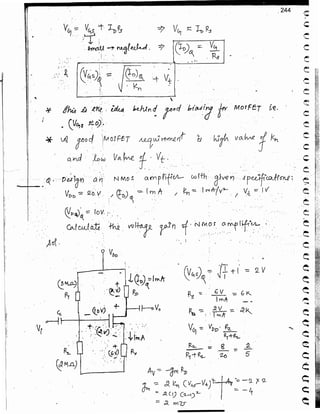 244
V_G = V_GS + I_D R_S ⇒ V_G = I_D R_S
small → neglected. ⇒ (I_D)_Q = V_G / R_S
& (V_GS)_Q = √((I_D)_Q / K_n) + V_t
* this is the idea behind good biasing for MOSFET ie.
(V_GS ≈ 0).
* A good MOSFET requirement is high value of K_n
and low value of V_t.
Q. Design an NMOS amplifier with given specifications:
V_DD = 20V, (I_D)_Q = 1mA, K_n = 1mA/V², V_t = 1V
(V_DS)_Q = 10V.
Calculate the voltage gain of NMOS amplifier.
Sol.
V_DD
(3MΩ) R_1
(I_D)_Q = 1mA
R_D
(10V)
V_o
C_G
V_i
↓1mA
R_2 (2MΩ)
(6V)
(V_GS)_Q = √1 + 1 = 2V
R_S = 6V / 1mA = 6K
= 2V / 1mA = 2K
V_G = V_DD · R_2 / (R_1+R_2)
R_2 / (R_1+R_2) = 8 / 20 = 2 / 5
A_V = -g_m R_D
g_m = 2 K_n (V_GS-V_t)
A_V = -2 × 2
= 2(1) (2-1)
= -4
= 2 mV